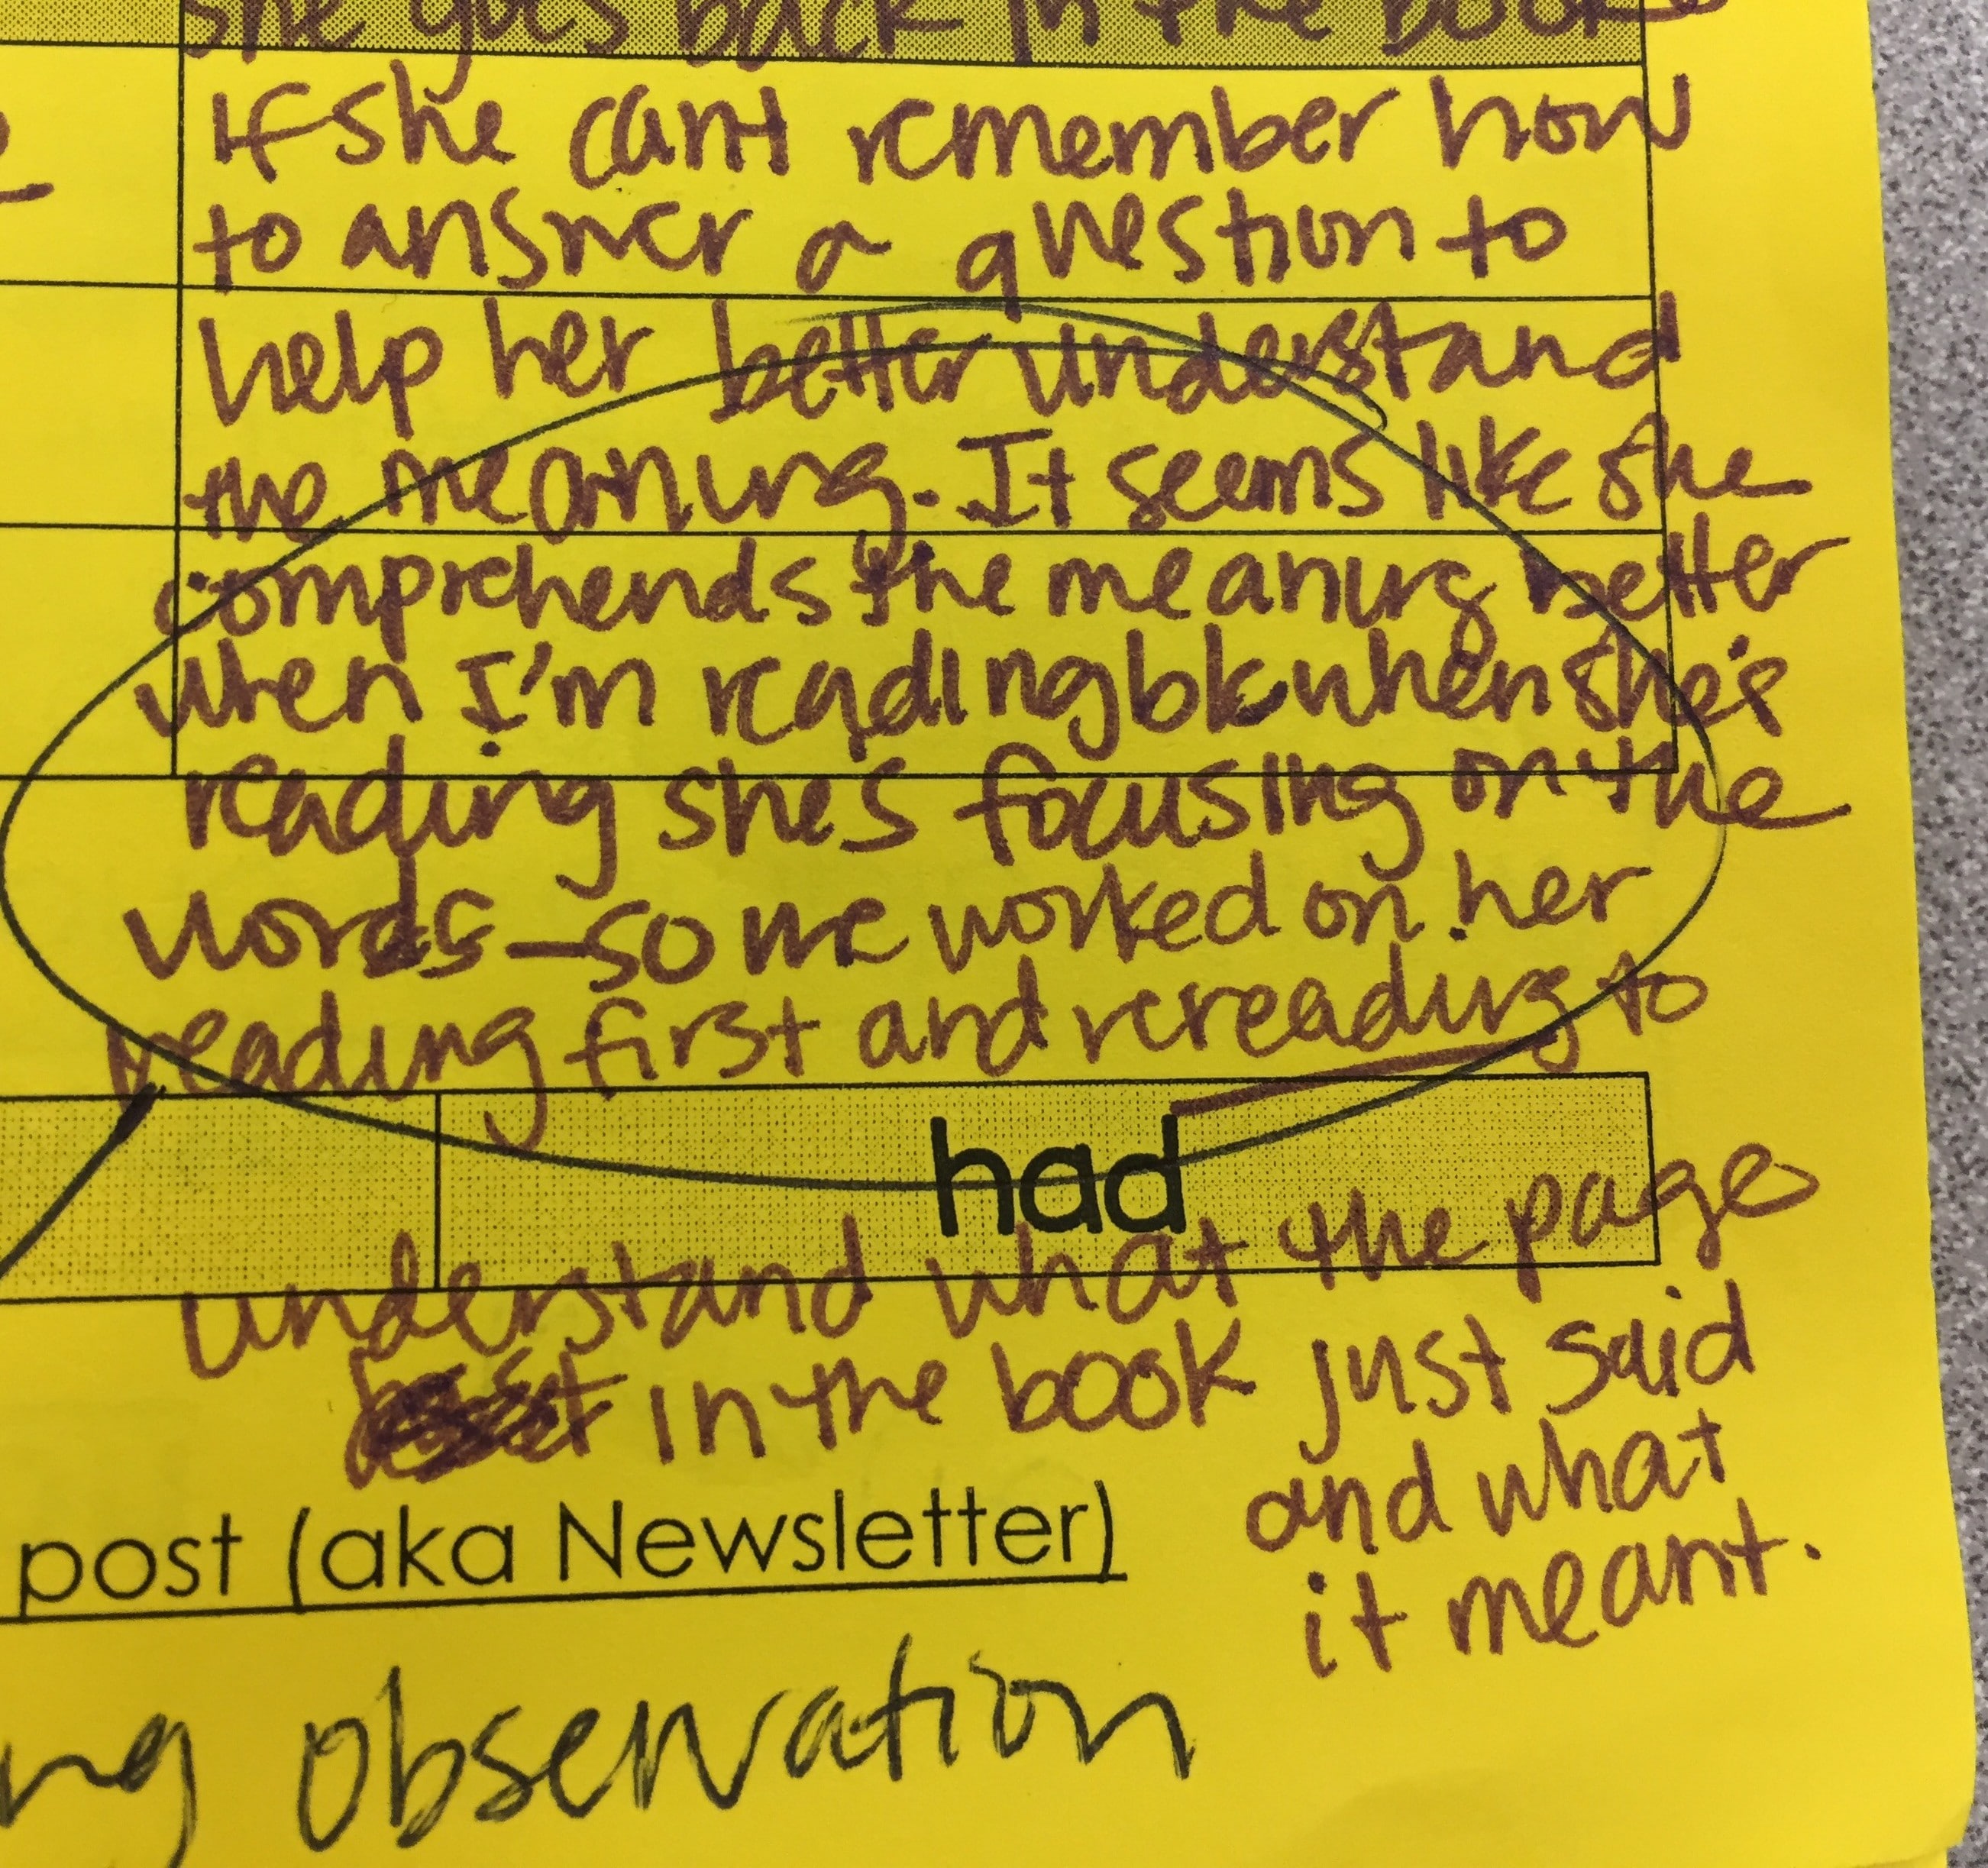 she goes back in the book
If she can't remember how
to answer a question to
help her better understand
the meaning. It seems like she
comprehends the meaning better
when I'm reading bk when she's
reading she's focusing on the
words - so we worked on her
reading first and rereading to
had
understand what the page
in the book just said
and what
it meant.
post (aka Newsletter)
ng observation